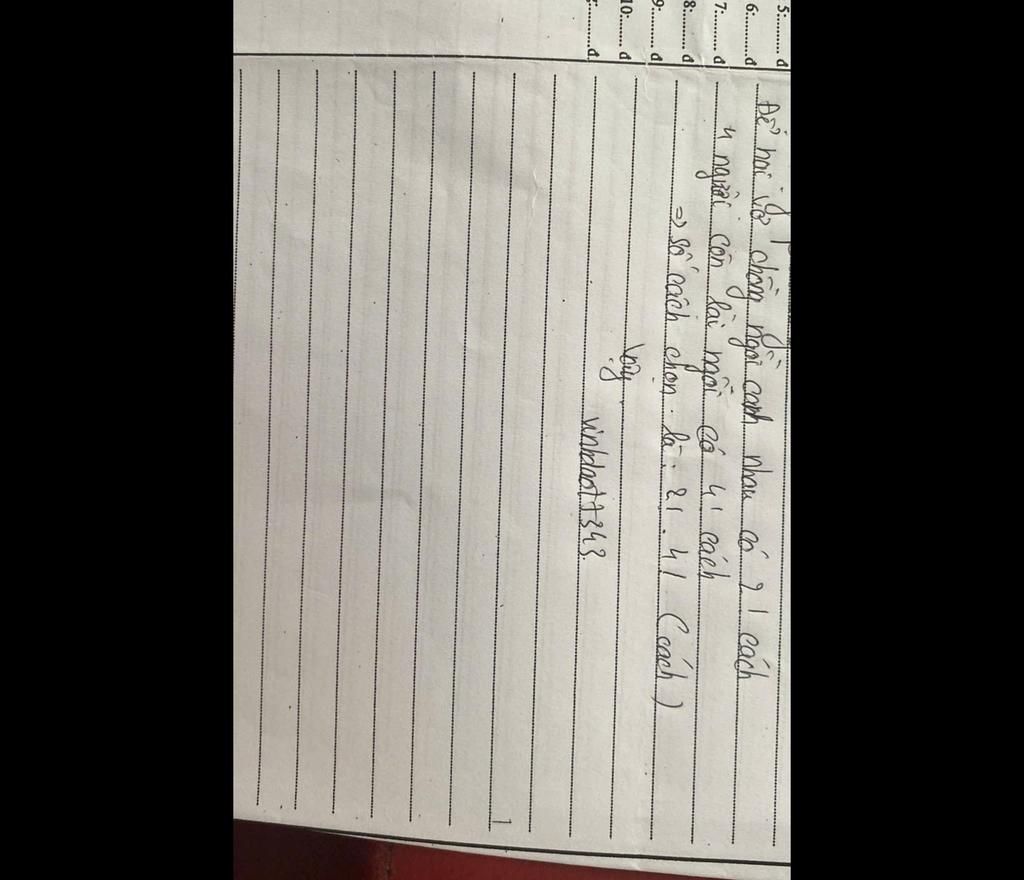 5:......... đ
6:......... đ
7:......... đ
8:......... đ
9:......... đ
10:......... đ
đ
Để hai vợ chồng ngồi cạnh nhau có 2! cách
4 người còn lại ngồi có 4! cách
=> số cách chọn là: 2! . 4! (cách)